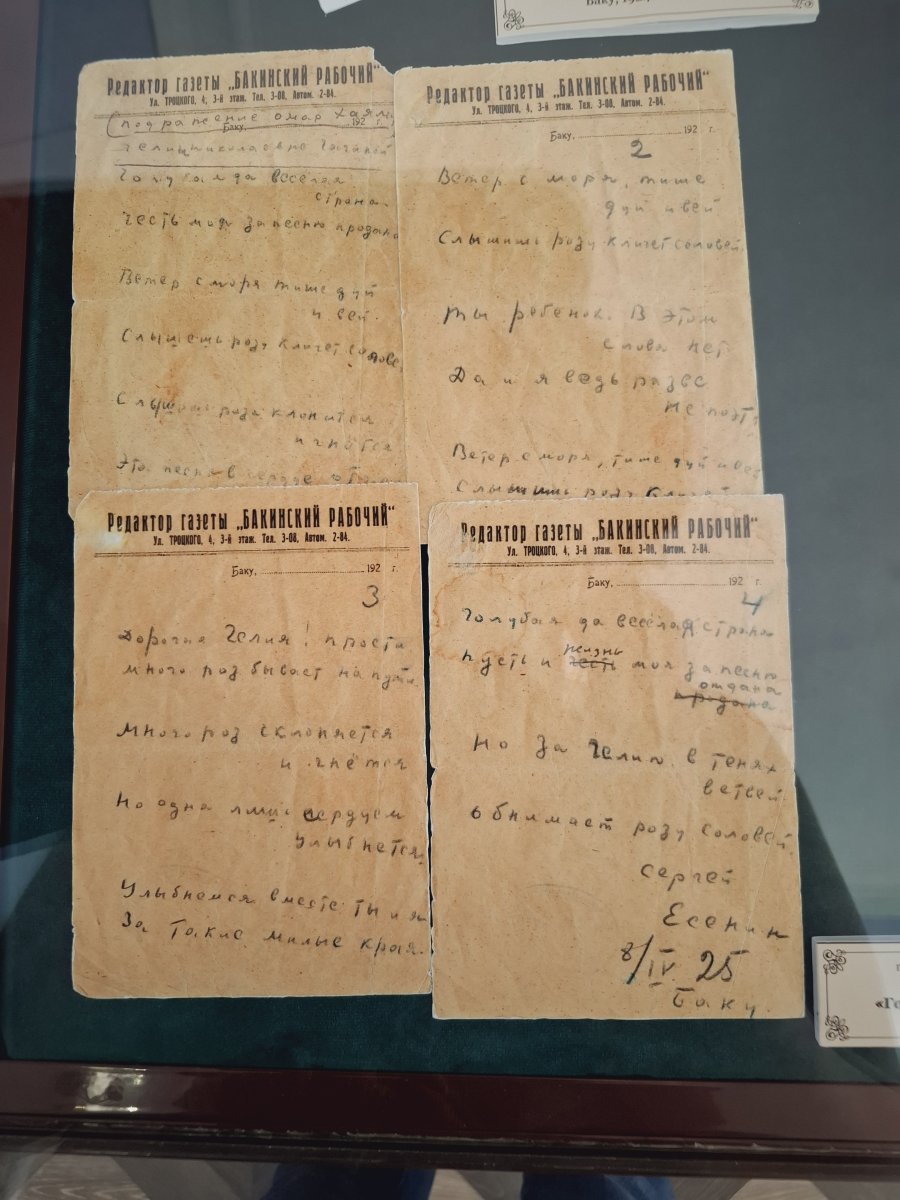 Баку, 192
Редактор газеты „БАКИНСКИЙ РАБОЧИЙ"
Ул. ТРОЦКОГО, 4, 3-й этаж. Тел. 3-08, Автом. 2-84.
(подражение омар Хаям
Баку, 192 г.
гелии николаевне
Голубая да веселая
страна.
Честь моя за песню продана
Ветер с моря тише дуй
и вей.
Слышешь розу кличет соловей
Слышишь роза клонится
и гнется
Эта песня в сердце
Редактор газеты „БАКИНСКИЙ РАБОЧИЙ"
Ул. ТРОЦКОГО, 4, 3-й этаж. Тел. 3-08, Автом. 2-84.
Баку, 192 г.
2
Ветер с моря, тише
дуй и вей
Слышишь розу кличет соловей
Ты ребенок. В этом
слова нет.
Да и я ведь разве
не поэт?
Ветер с моря, тише дуй и вей
Слышишь розу кличет
Редактор газеты „БАКИНСКИЙ РАБОЧИЙ"
Ул. ТРОЦКОГО, 4, 3-й этаж. Тел. 3-08, Автом. 2-84.
Баку, 192 г.
3
Дорогая Гелия! прости
много роз бывает на пути
Много роз склоняется
и гнётся
Но одна лишь сердцем
улыбнется.
Улыбнемся вместе ты и я
За такие милые края.
Редактор газеты „БАКИНСКИЙ РАБОЧИЙ"
Ул. ТРОЦКОГО, 4, 3-й этаж. Тел. 3-08, Автом. 2-84.
Баку, 192 г.
4
Голубая да весёлая страна
жизнь
Пусть и честь моя за песню
отдана
продана
Но за Гелию в тенях
ветвей
обнимает розу соловей.
Сергей
Есенин
8/IV 25
Баку.
«Го